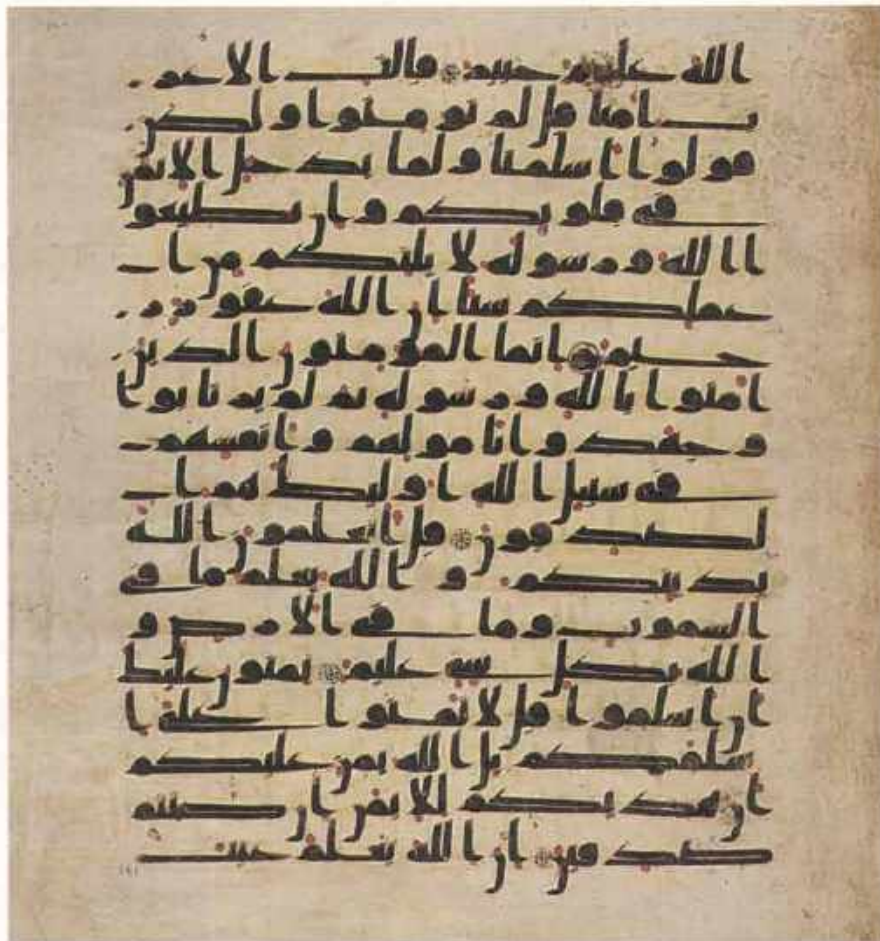 الله عليم خبير قالت الاعر
ب امنا قل لم تومنوا ولكن
قولوا اسلمنا ولما يدخل الايمن
في قلوبكم وان تطيعو
ا الله ورسوله لا يلتكم من ا
عملكم شيا ان الله غفور ر
حيم انما المومنون الذين
امنوا بالله ورسوله ثم لم يرتابوا
وجهدوا بامولهم وانفسهم
في سبيل الله اوليك هم ا
لصدقون قل اتعلمون الله
بدينكم و الله يعلم ما في
السموت وما في الارض و
الله بكل شي عليم يمنون عليك
ان اسلموا قل لا تمنوا علي ا
سلمكم بل الله يمن عليكم
ان هديكم للايمن ان كنتم
صدقين ان الله يعلم غيب